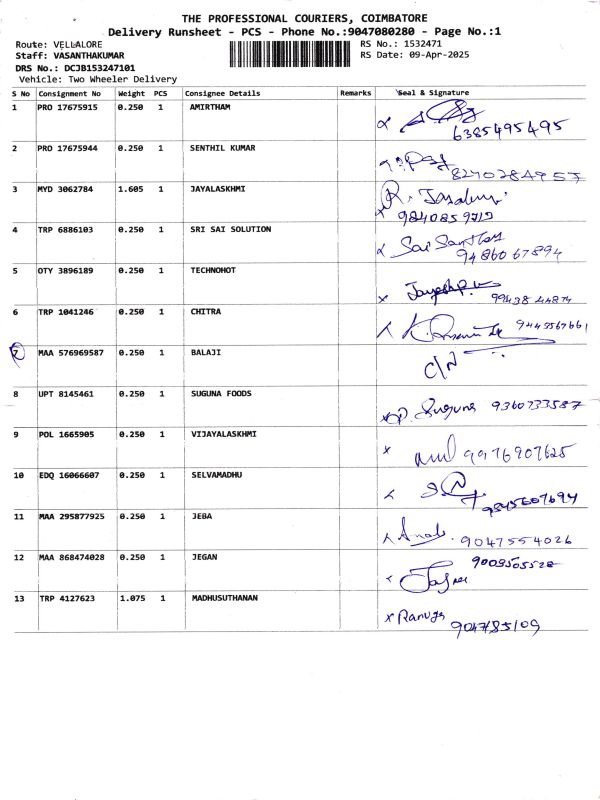 THE PROFESSIONAL COURIERS, COIMBATORE
Delivery Runsheet - PCS - Phone No.:9047080280 - Page No.:1
Route: VELLALORE RS No.: 1532471
Staff: VASANTHAKUMAR RS Date: 09-Apr-2025
DRS No.: DCJB153247101
Vehicle: Two Wheeler Delivery
S No Consignment No Weight PCS Consignee Details Remarks Seal & Signature
1 PRO 17675915 0.250 1 AMIRTHAM
6385495495
2 PRO 17675944 0.250 1 SENTHIL KUMAR
8270284957
3 MYD 3062784 1.605 1 JAYALASKHMI
9840859712
4 TRP 6886103 0.250 1 SRI SAI SOLUTION Sai Santhos
9486067894
5 OTY 3896189 0.250 1 TECHNOHOT
99438 44874
6 TRP 1041246 0.250 1 CHITRA 9445567661
7 MAA 576969587 0.250 1 BALAJI C/N
8 UPT 8145461 0.250 1 SUGUNA FOODS P. Suguna 9360733587
9 POL 1665905 0.250 1 VIJAYALASKHMI
9976907625
10 EDQ 16066607 0.250 1 SELVAMADHU
9845607694
11 MAA 295877925 0.250 1 JEBA
9047554026
12 MAA 868474028 0.250 1 JEGAN 9003505528
13 TRP 4127623 1.075 1 MADHUSUTHANAN
Ranuga
9047185109